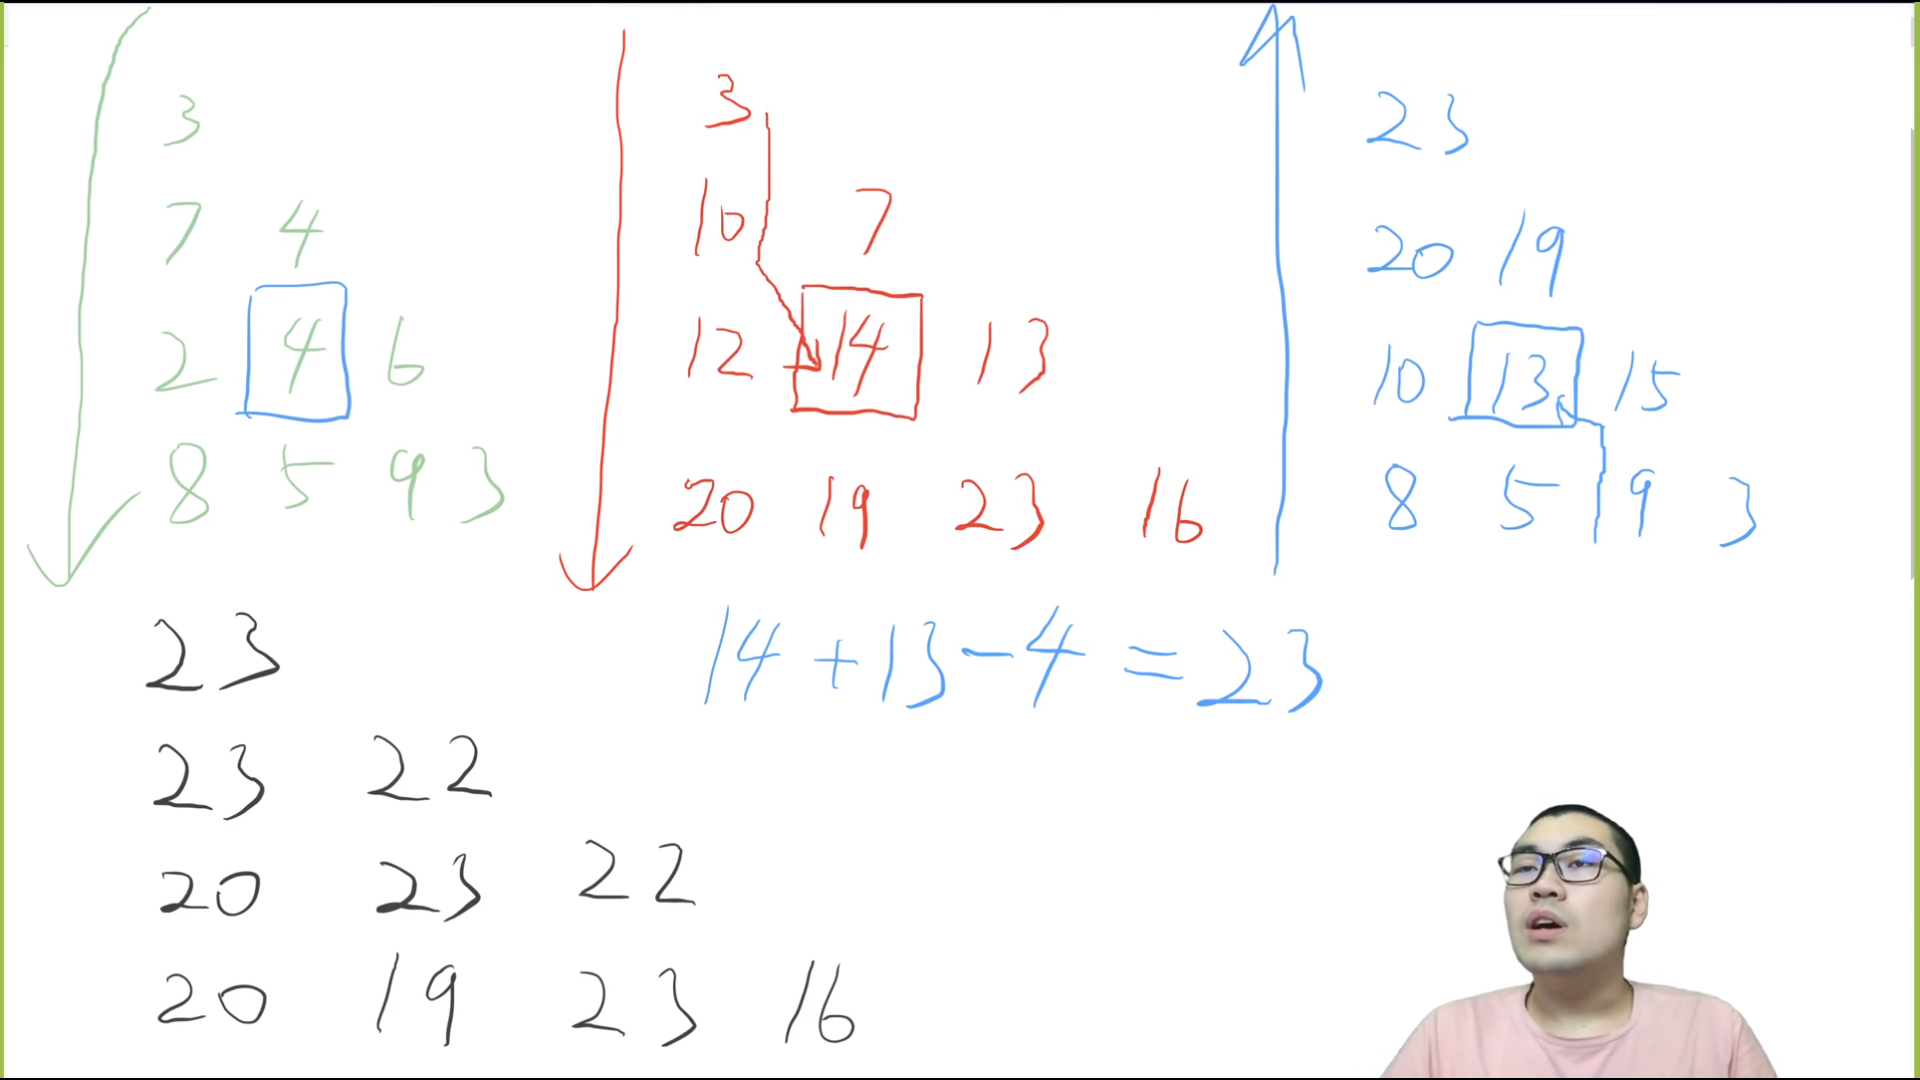 3
7 4
2 4 6
8 5 9 3
3
10 7
12 14 13
20 19 23 16
23
20 19
10 13 15
8 5 9 3
14 + 13 - 4 = 23
23
23 22
20 23 22
20 19 23 16